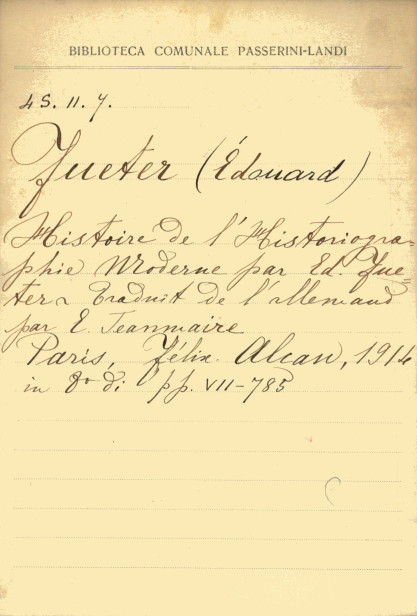 BIBLIOTECA COMUNALE PASSERINI-LANDI
4 S. 11. 7.
Fueter (Édouard)
Histoire de l'Historiogra-
phie Moderne par Ed. Fue-
ter traduit de l'allemand
par E. Jeanmaire
Paris, Félix Alcan, 1914
in 8º di pp. VII-785